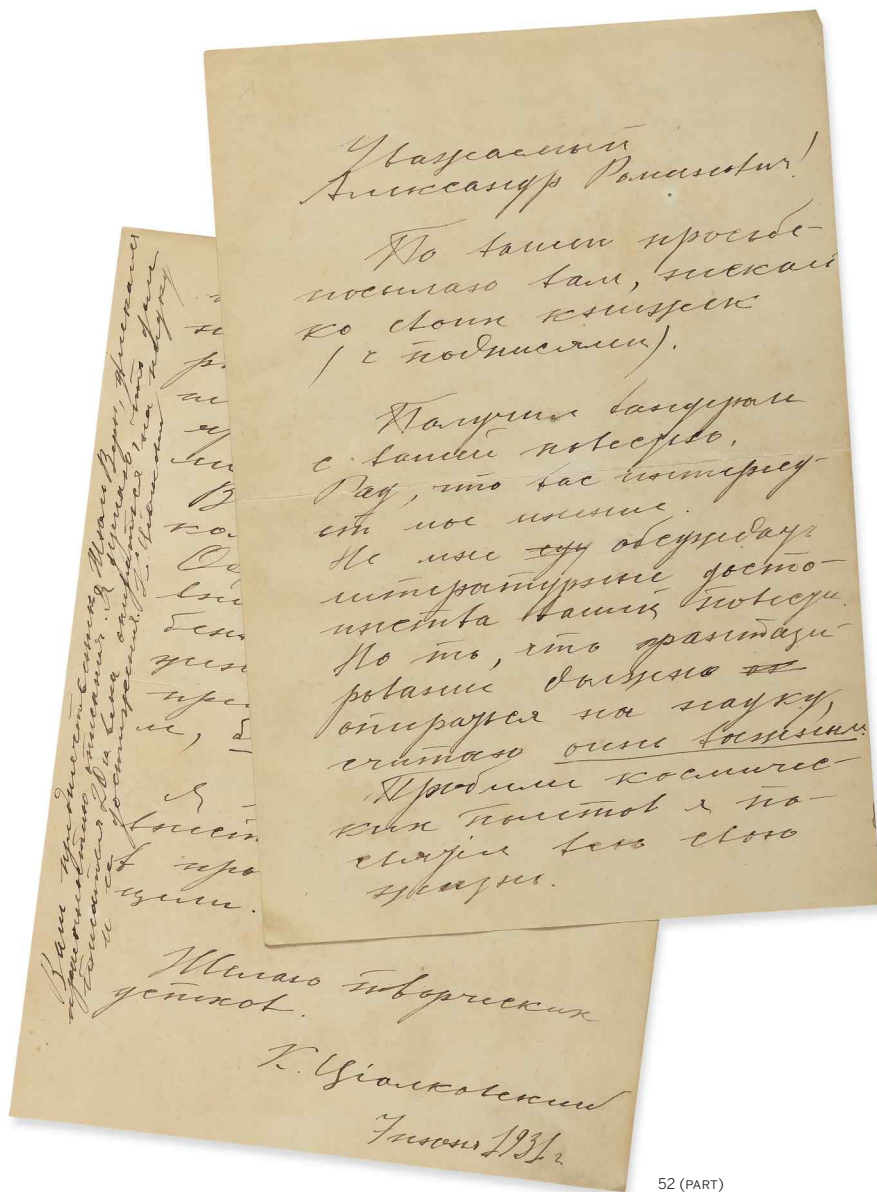 Уважаемый
Александр Романович!
По вашей просьбе
посылаю вам, несколь
ко своих книжек
(с подписями).
Получил бандероль
с вашей повестью.
Рад, что вас интересу-
ет мое мнение.
Не мне обсуждать
литературные досто-
инства вашей повести.
Но то, что фантази-
рование должно
опираться на науку,
считаю очень важным.
Проблеме космичес-
ких полетов я по-
святил всю свою
жизнь.
Я
цели.
Желаю творческих
успехов.
К. Ціолковский
7 июня 1931 г.
Ваш предшественник Жюль Верн,
Я думаю, что
века опираться на науку
и ее достижения. К. Ціолковский
52 (PART)